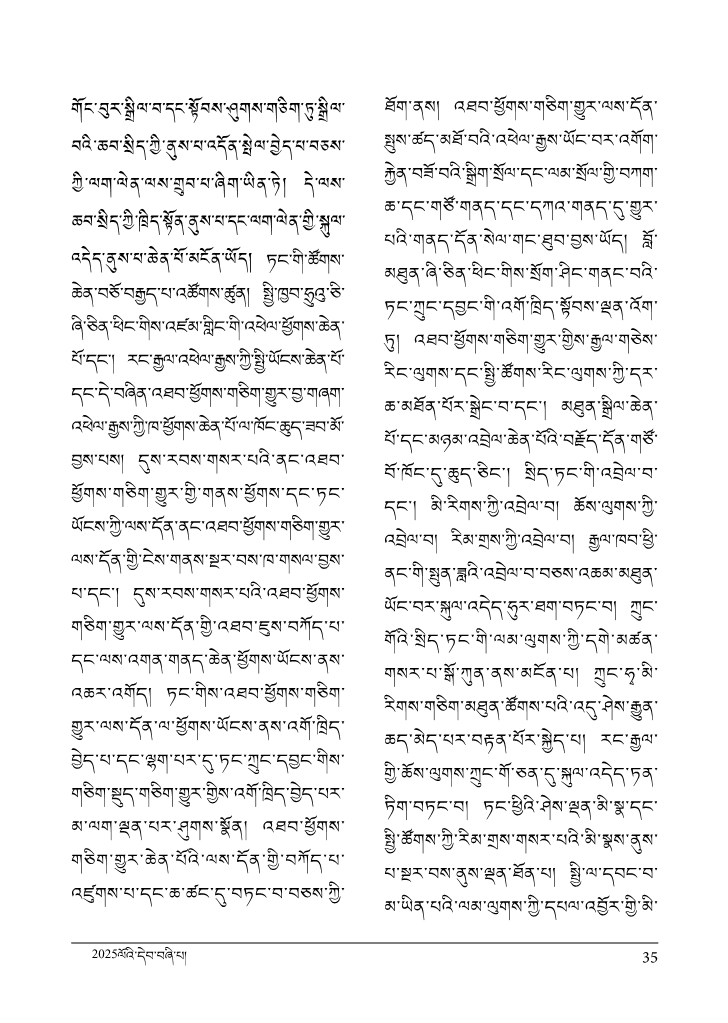 གོང་བུར་སྒྲིལ་བ་དང་སྟོབས་ཤུགས་གཅིག་ཏུ་སྒྲིལ་
བའི་ཆབ་སྲིད་ཀྱི་ནུས་པ་འདོན་སྤེལ་བྱེད་པ་བཅས་
ཀྱི་ལག་ལེན་ལས་གྲུབ་པ་ཞིག་ཡིན་ཏེ། དེ་ལས་
ཆབ་སྲིད་ཀྱི་ཁྲིད་སྟོན་ནུས་པ་དང་ལག་ལེན་གྱི་སྐུལ་
འདེད་ནུས་པ་ཆེན་པོ་མངོན་ཡོད། ཏང་གི་ཚོགས་
ཆེན་བཅོ་བརྒྱད་པ་འཚོགས་ཚུན། སྤྱི་ཁྱབ་ཧྲུའུ་ཅི་
ཞི་ཅིན་ཕིང་གིས་འཛམ་གླིང་གི་འཕེལ་ཕྱོགས་ཆེན་
པོ་དང་། རང་རྒྱལ་འཕེལ་རྒྱས་ཀྱི་སྤྱི་ཡོངས་ཆེན་པོ་
དང་དེ་བཞིན་འཐབ་ཕྱོགས་གཅིག་གྱུར་བྱ་གཞག་
འཕེལ་རྒྱས་ཀྱི་ཁ་ཕྱོགས་ཆེན་པོ་ལ་ཁོང་ཆུད་ཟབ་མོ་
བྱས་པས། དུས་རབས་གསར་པའི་ནང་འཐབ་
ཕྱོགས་གཅིག་གྱུར་གྱི་གནས་ཕྱོགས་དང་ཏང་
ཡོངས་ཀྱི་ལས་དོན་ནང་འཐབ་ཕྱོགས་གཅིག་གྱུར་
ལས་དོན་གྱི་ངེས་གནས་སྔར་བས་ཁ་གསལ་བྱས་
པ་དང་། དུས་རབས་གསར་པའི་འཐབ་ཕྱོགས་
གཅིག་གྱུར་ལས་དོན་གྱི་འཐབ་ཇུས་བཀོད་པ་
དང་ལས་འགན་གནད་ཆེན་ཕྱོགས་ཡོངས་ནས་
འཆར་འགོད། ཏང་གིས་འཐབ་ཕྱོགས་གཅིག་
གྱུར་ལས་དོན་ལ་ཕྱོགས་ཡོངས་ནས་འགོ་ཁྲིད་
བྱེད་པ་དང་ལྷག་པར་དུ་ཏང་ཀྲུང་དབྱང་གིས་
གཅིག་སྡུད་གཅིག་གྱུར་གྱིས་འགོ་ཁྲིད་བྱེད་པར་
མ་ལག་ལྡན་པར་ཤུགས་སྣོན། འཐབ་ཕྱོགས་
གཅིག་གྱུར་ཆེན་པོའི་ལས་དོན་གྱི་བཀོད་པ་
འཛུགས་པ་དང་ཆ་ཚང་དུ་བཏང་བ་བཅས་ཀྱི་
ཐོག་ནས། འཐབ་ཕྱོགས་གཅིག་གྱུར་ལས་དོན་
སྤུས་ཚད་མཐོ་བའི་འཕེལ་རྒྱས་ཡོང་བར་འགོག་
རྐྱེན་བཟོ་བའི་སྒྲིག་སྲོལ་དང་ལམ་སྲོལ་གྱི་བཀག་
ཆ་དང་གཙོ་གནད་དང་དཀའ་གནད་དུ་གྱུར་
པའི་གནད་དོན་སེལ་གང་ཐུབ་བྱས་ཡོད། བློ་
མཐུན་ཞི་ཅིན་ཕིང་གིས་སྲོག་ཤིང་གནང་བའི་
ཏང་ཀྲུང་དབྱང་གི་འགོ་ཁྲིད་སྟོབས་ལྡན་འོག་
ཏུ། འཐབ་ཕྱོགས་གཅིག་གྱུར་གྱིས་རྒྱལ་གཅེས་
རིང་ལུགས་དང་སྤྱི་ཚོགས་རིང་ལུགས་ཀྱི་དར་
ཆ་མཐོན་པོར་སྒྲེང་བ་དང་། མཐུན་སྒྲིལ་ཆེན་
པོ་དང་མཉམ་འབྲེལ་ཆེན་པོའི་བརྗོད་དོན་གཙོ་
བོ་ཁོང་དུ་ཆུད་ཅིང་། སྲིད་ཏང་གི་འབྲེལ་བ་
དང་། མི་རིགས་ཀྱི་འབྲེལ་བ། ཆོས་ལུགས་ཀྱི་
འབྲེལ་བ། རིམ་གྲས་ཀྱི་འབྲེལ་བ། རྒྱལ་ཁབ་ཕྱི་
ནང་གི་སྤུན་ཟླའི་འབྲེལ་བ་བཅས་འཆམ་མཐུན་
ཡོང་བར་སྐུལ་འདེད་ཧུར་ཐག་བཏང་བ། ཀྲུང་
གོའི་སྲིད་ཏང་གི་ལམ་ལུགས་ཀྱི་དགེ་མཚན་
གསར་པ་སྒོ་ཀུན་ནས་མངོན་པ། ཀྲུང་ཧྭ་མི་
རིགས་གཅིག་མཐུན་ཚོགས་པའི་འདུ་ཤེས་རྒྱུན་
ཆད་མེད་པར་བརྟན་པོར་སྐྱེད་པ། རང་རྒྱལ་
གྱི་ཆོས་ལུགས་ཀྲུང་གོ་ཅན་དུ་སྐུལ་འདེད་ཏན་
ཏིག་བཏང་བ། ཏང་ཕྱིའི་ཤེས་ལྡན་མི་སྣ་དང་
སྤྱི་ཚོགས་ཀྱི་རིམ་གྲས་གསར་པའི་མི་སྣས་ནུས་
པ་སྔར་བས་ནུས་ལྡན་ཐོན་པ། སྤྱི་ལ་དབང་བ་
མ་ཡིན་པའི་ལམ་ལུགས་ཀྱི་དཔལ་འབྱོར་གྱི་མི་
2025ལོའི་དེབ་བཞི་པ།
35